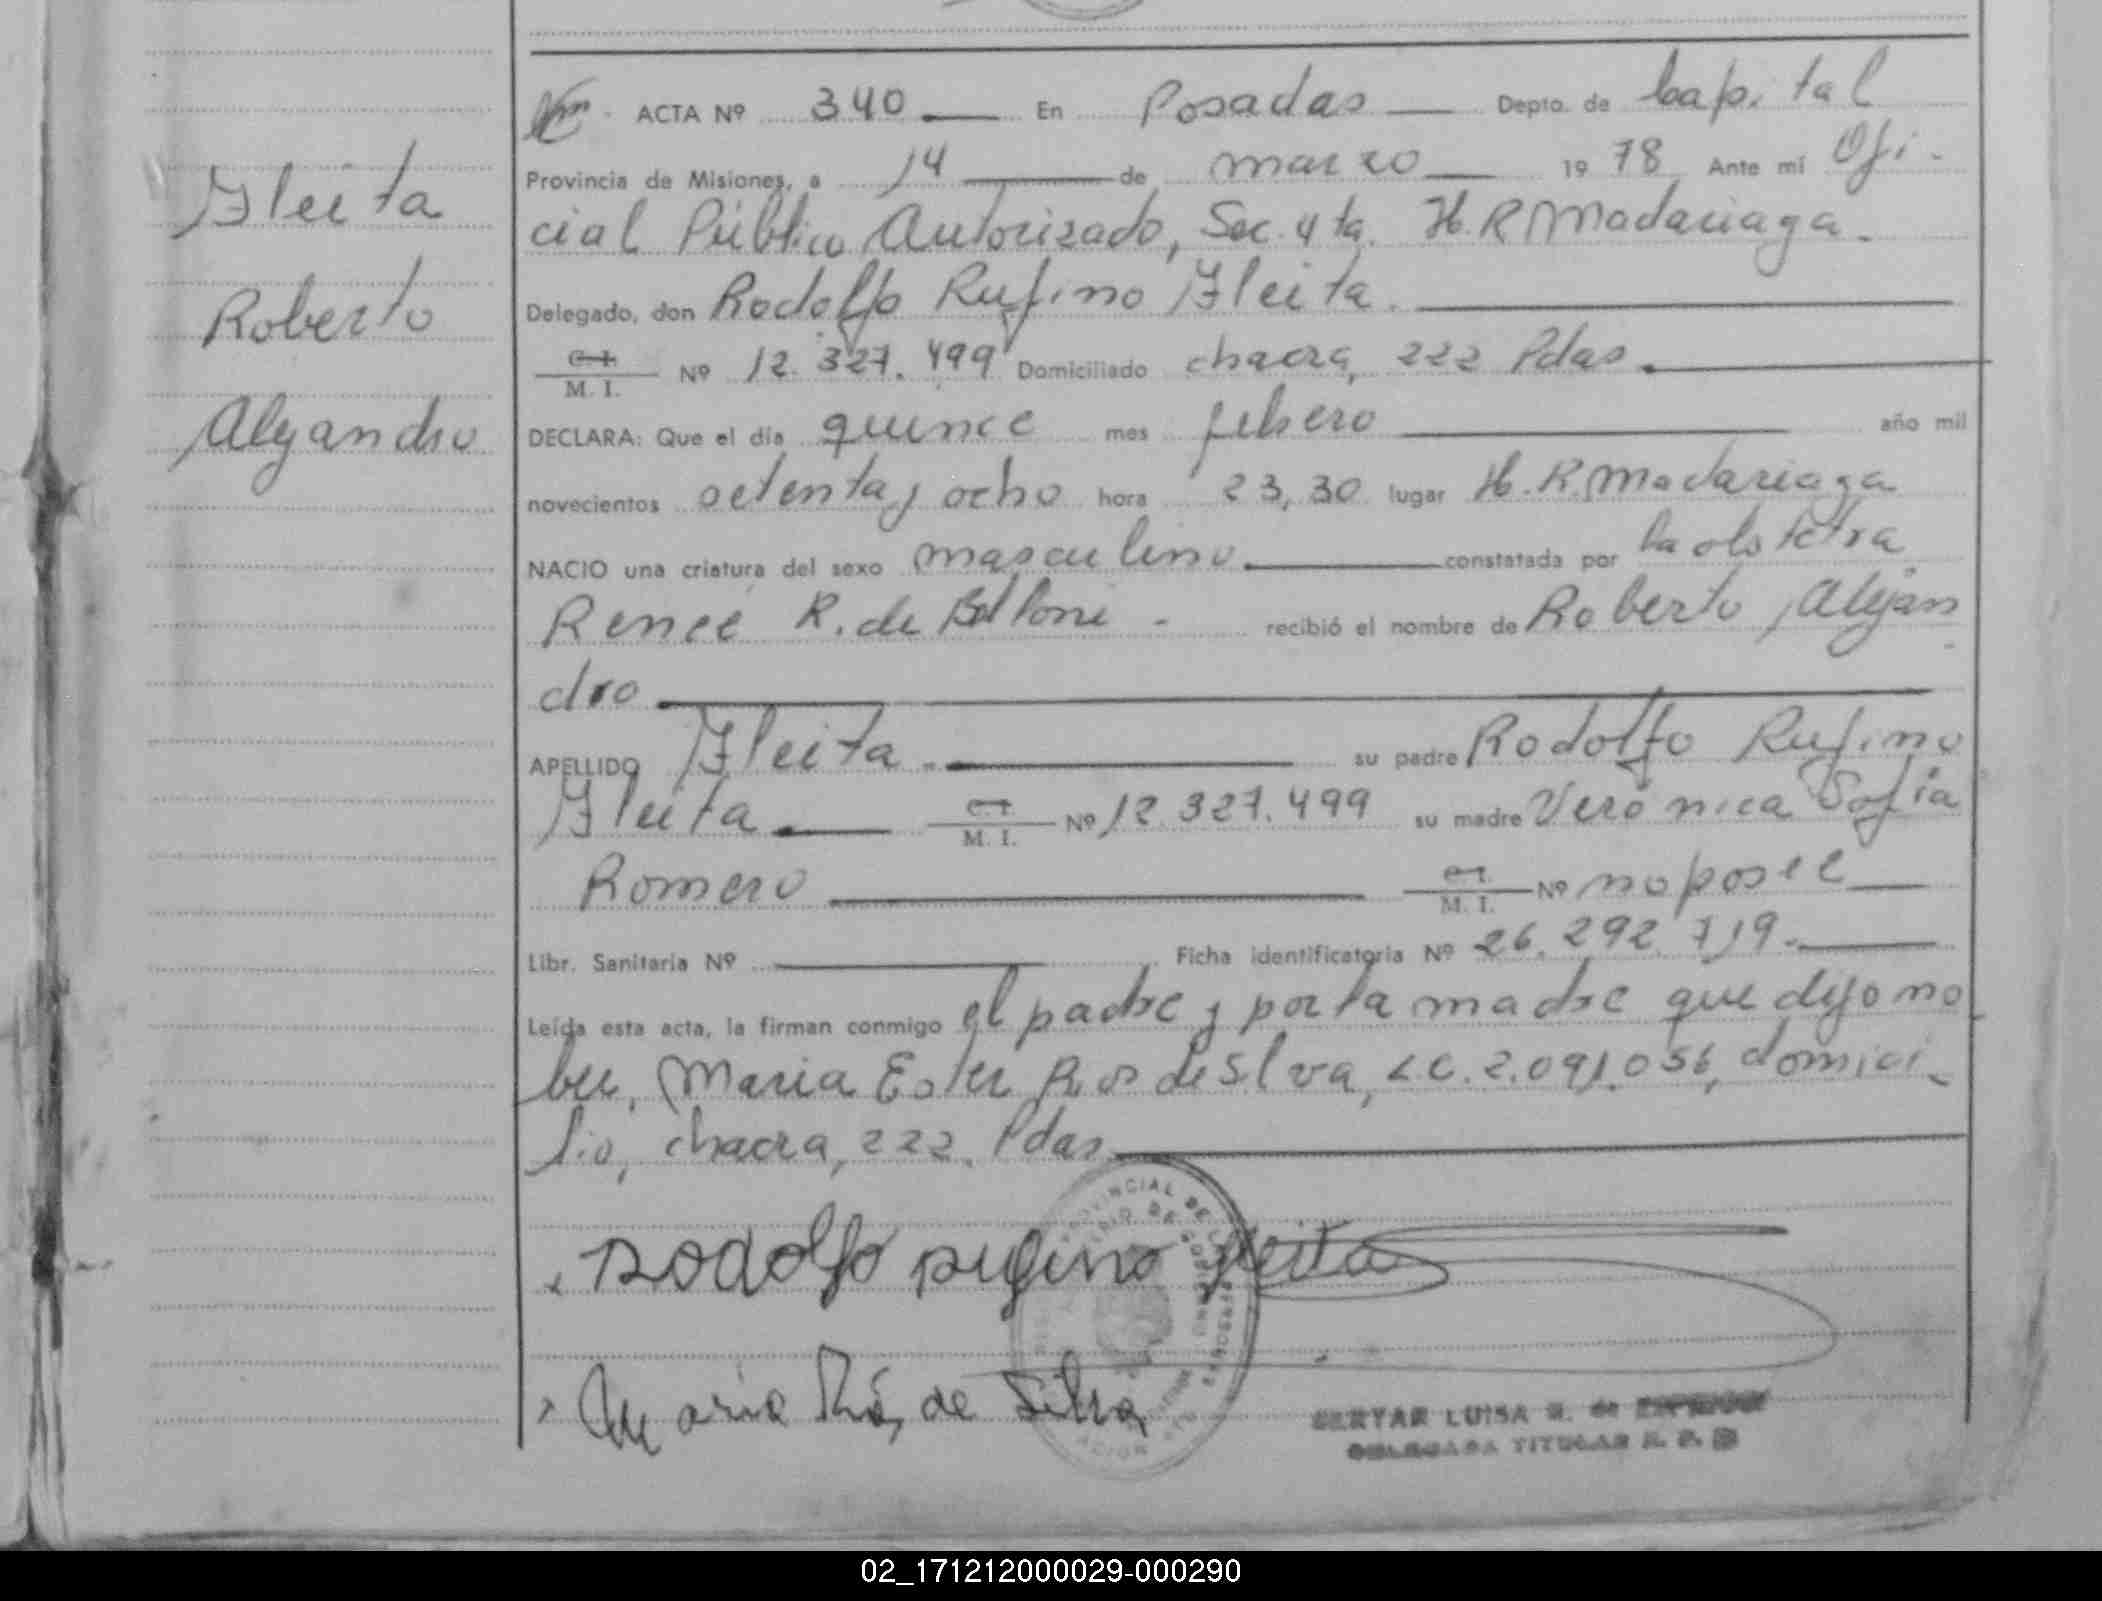 Fleita
Roberto
Alejandro
ACTA Nº 340 En Posadas Depto. de Capital
Provincia de Misiones, a 14 de marzo 1978 Ante mí Ofi-
cial Público Autorizado, Sec. 4ta. H. R Madariaga.
Delegado, don Rodolfo Rufino Fleita.
C. I. M. I. Nº 12.327.499 Domiciliado chacra, 222 Pdas.
DECLARA: Que el día quince mes febrero año mil
novecientos setenta y ocho hora 23,30 lugar H. R. Madariaga
NACIO una criatura del sexo masculino constatada por la obstetra
Renee R. de Belloni - recibió el nombre de Roberto Alejan
dro
APELLIDO Fleita su padre Rodolfo Rufino
Fleita C. I. M. I. Nº 12.327.499 su madre Verónica Sofia
Romero C. I. M. I. Nº no posee
Libr. Sanitaria Nº Ficha identificatoria Nº 26.292.719.
Leída esta acta, la firman conmigo el padre y por la madre que dijo no
ber, Maria Ester de Silva, L C. 2.091.056, domici-
lio, chacra, 222, Pdas
Rodolfo rufino fleita
Maria de Silva
LUISA R. de
DELEGADA TITULAR R. P.
02_171212000029-000290